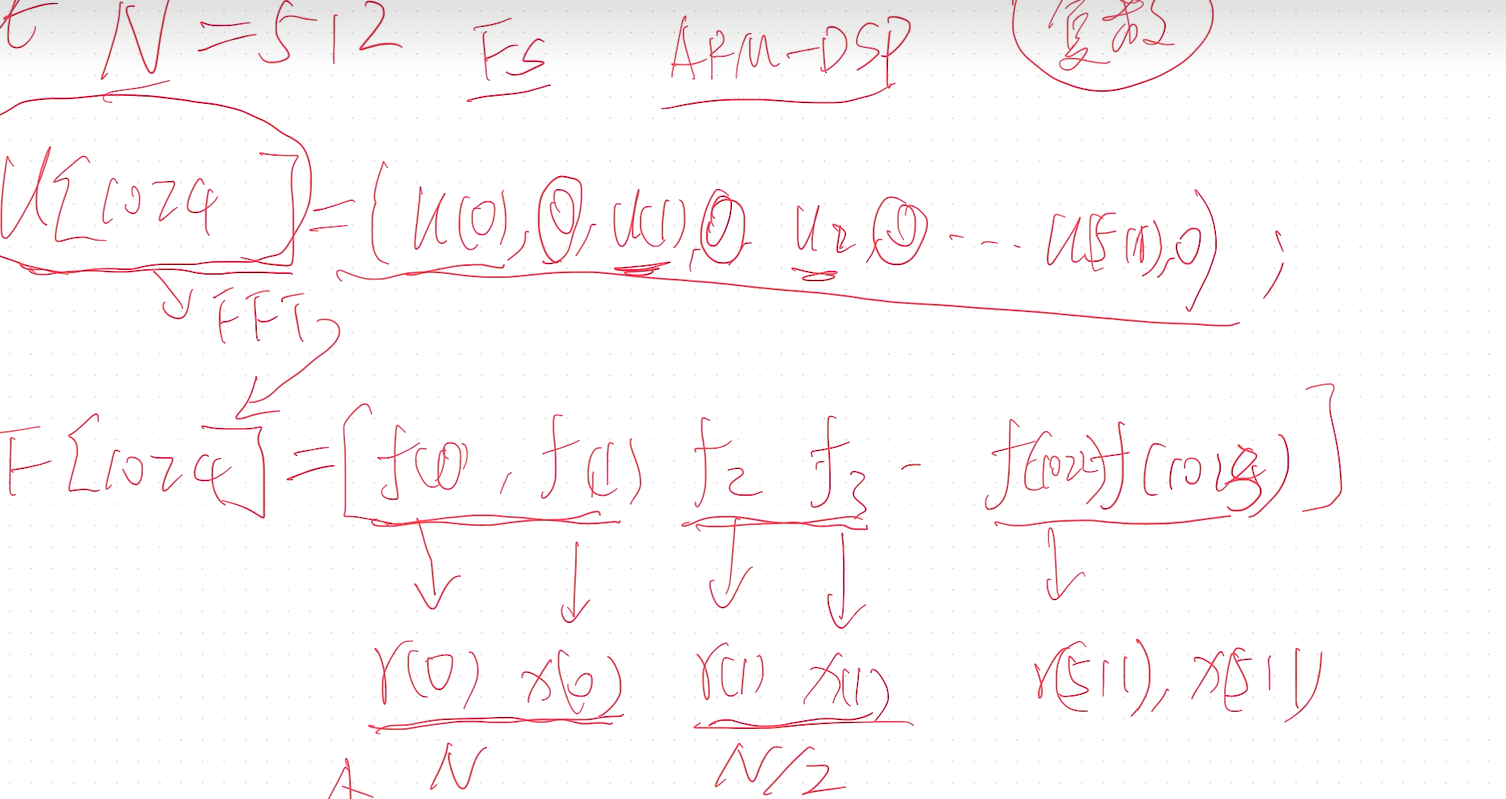 t N=512 FS ARM-DSP 复数
U[1024]=(U(0),0,U(1),0 U2,0----U(511),0);
FFT
F[1024]=[f(0),f(1) f2 f3 - f(1022)f(1023)]
r(0) x(0) r(1) x(1) r(511), x(511)
A N N/2